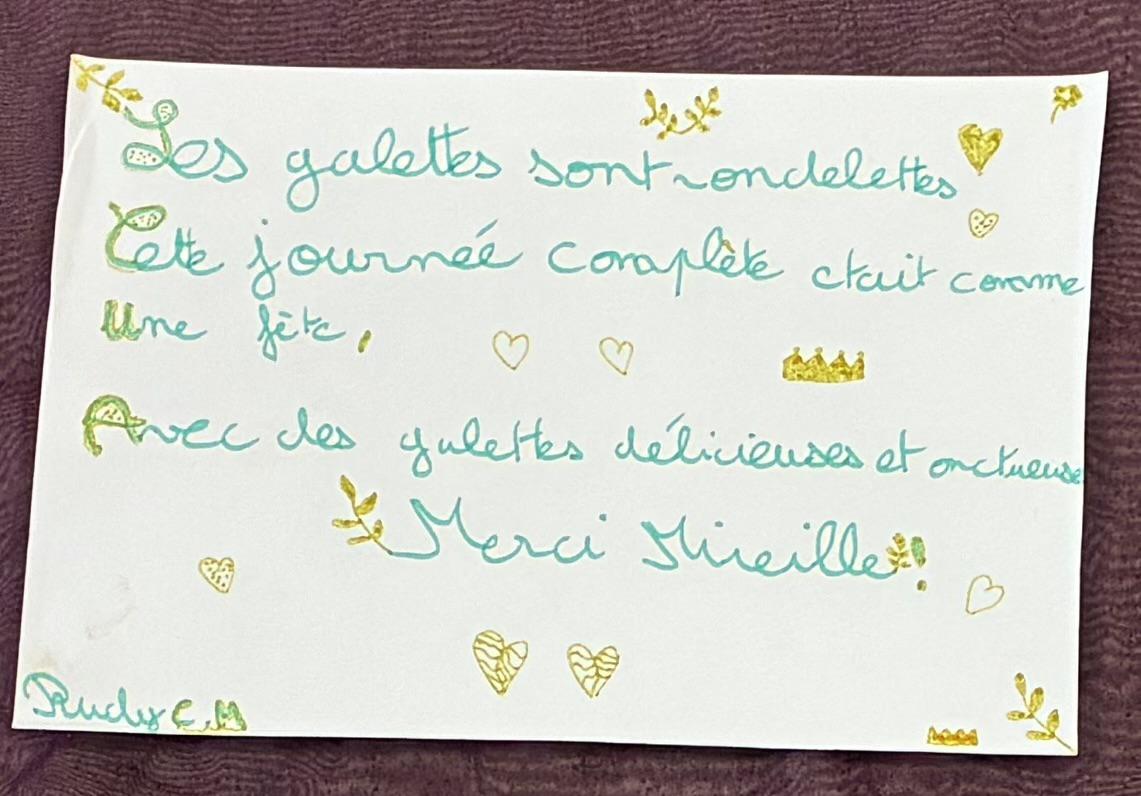 Les galettes sont rondelettes
Cette journée complète était comme
une fête,
Avec des galettes délicieuses et onctueuse
Merci Mireille!
Rudy C.M